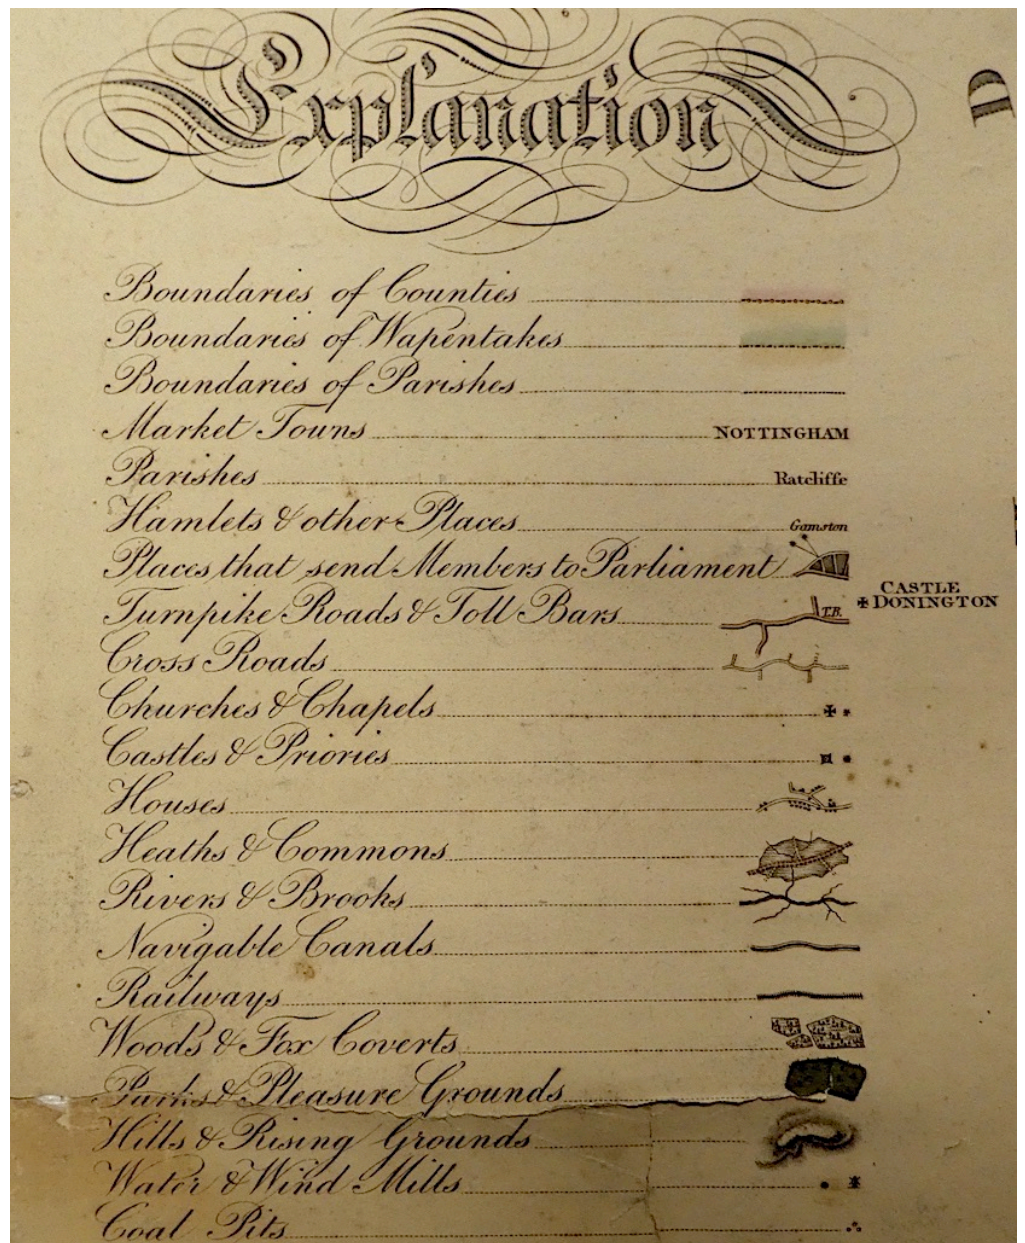 Explanation
D
Boundaries of Counties
Boundaries of Wapentakes
Boundaries of Parishes
Market Towns NOTTINGHAM
Parishes Ratcliffe
Hamlets & other Places Gamston
Places that send Members to Parliament
CASTLE
DONINGTON
Turnpike Roads & Toll Bars T.B.
Cross Roads
Churches & Chapels
Castles & Priories
Houses
Heaths & Commons
Rivers & Brooks
Navigable Canals
Railways
Woods & Fox Coverts
Parks & Pleasure Grounds
Hills & Rising Grounds
Water & Wind Mills
Coal Pits